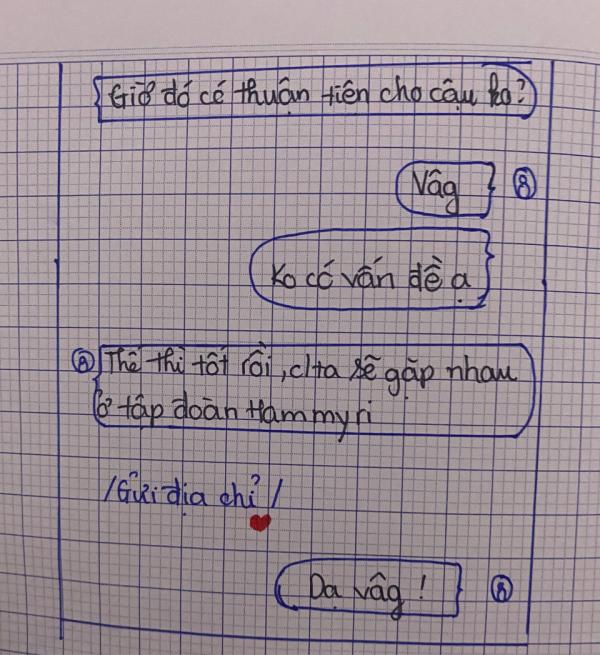 Giờ đó có thuận tiện cho cậu ko?
Vâg
Ko có vấn đề ạ
Thế thì tốt rồi, cta sẽ gặp nhau
ở tập đoàn Hammyri
/Gửi địa chỉ/
Dạ vâg!